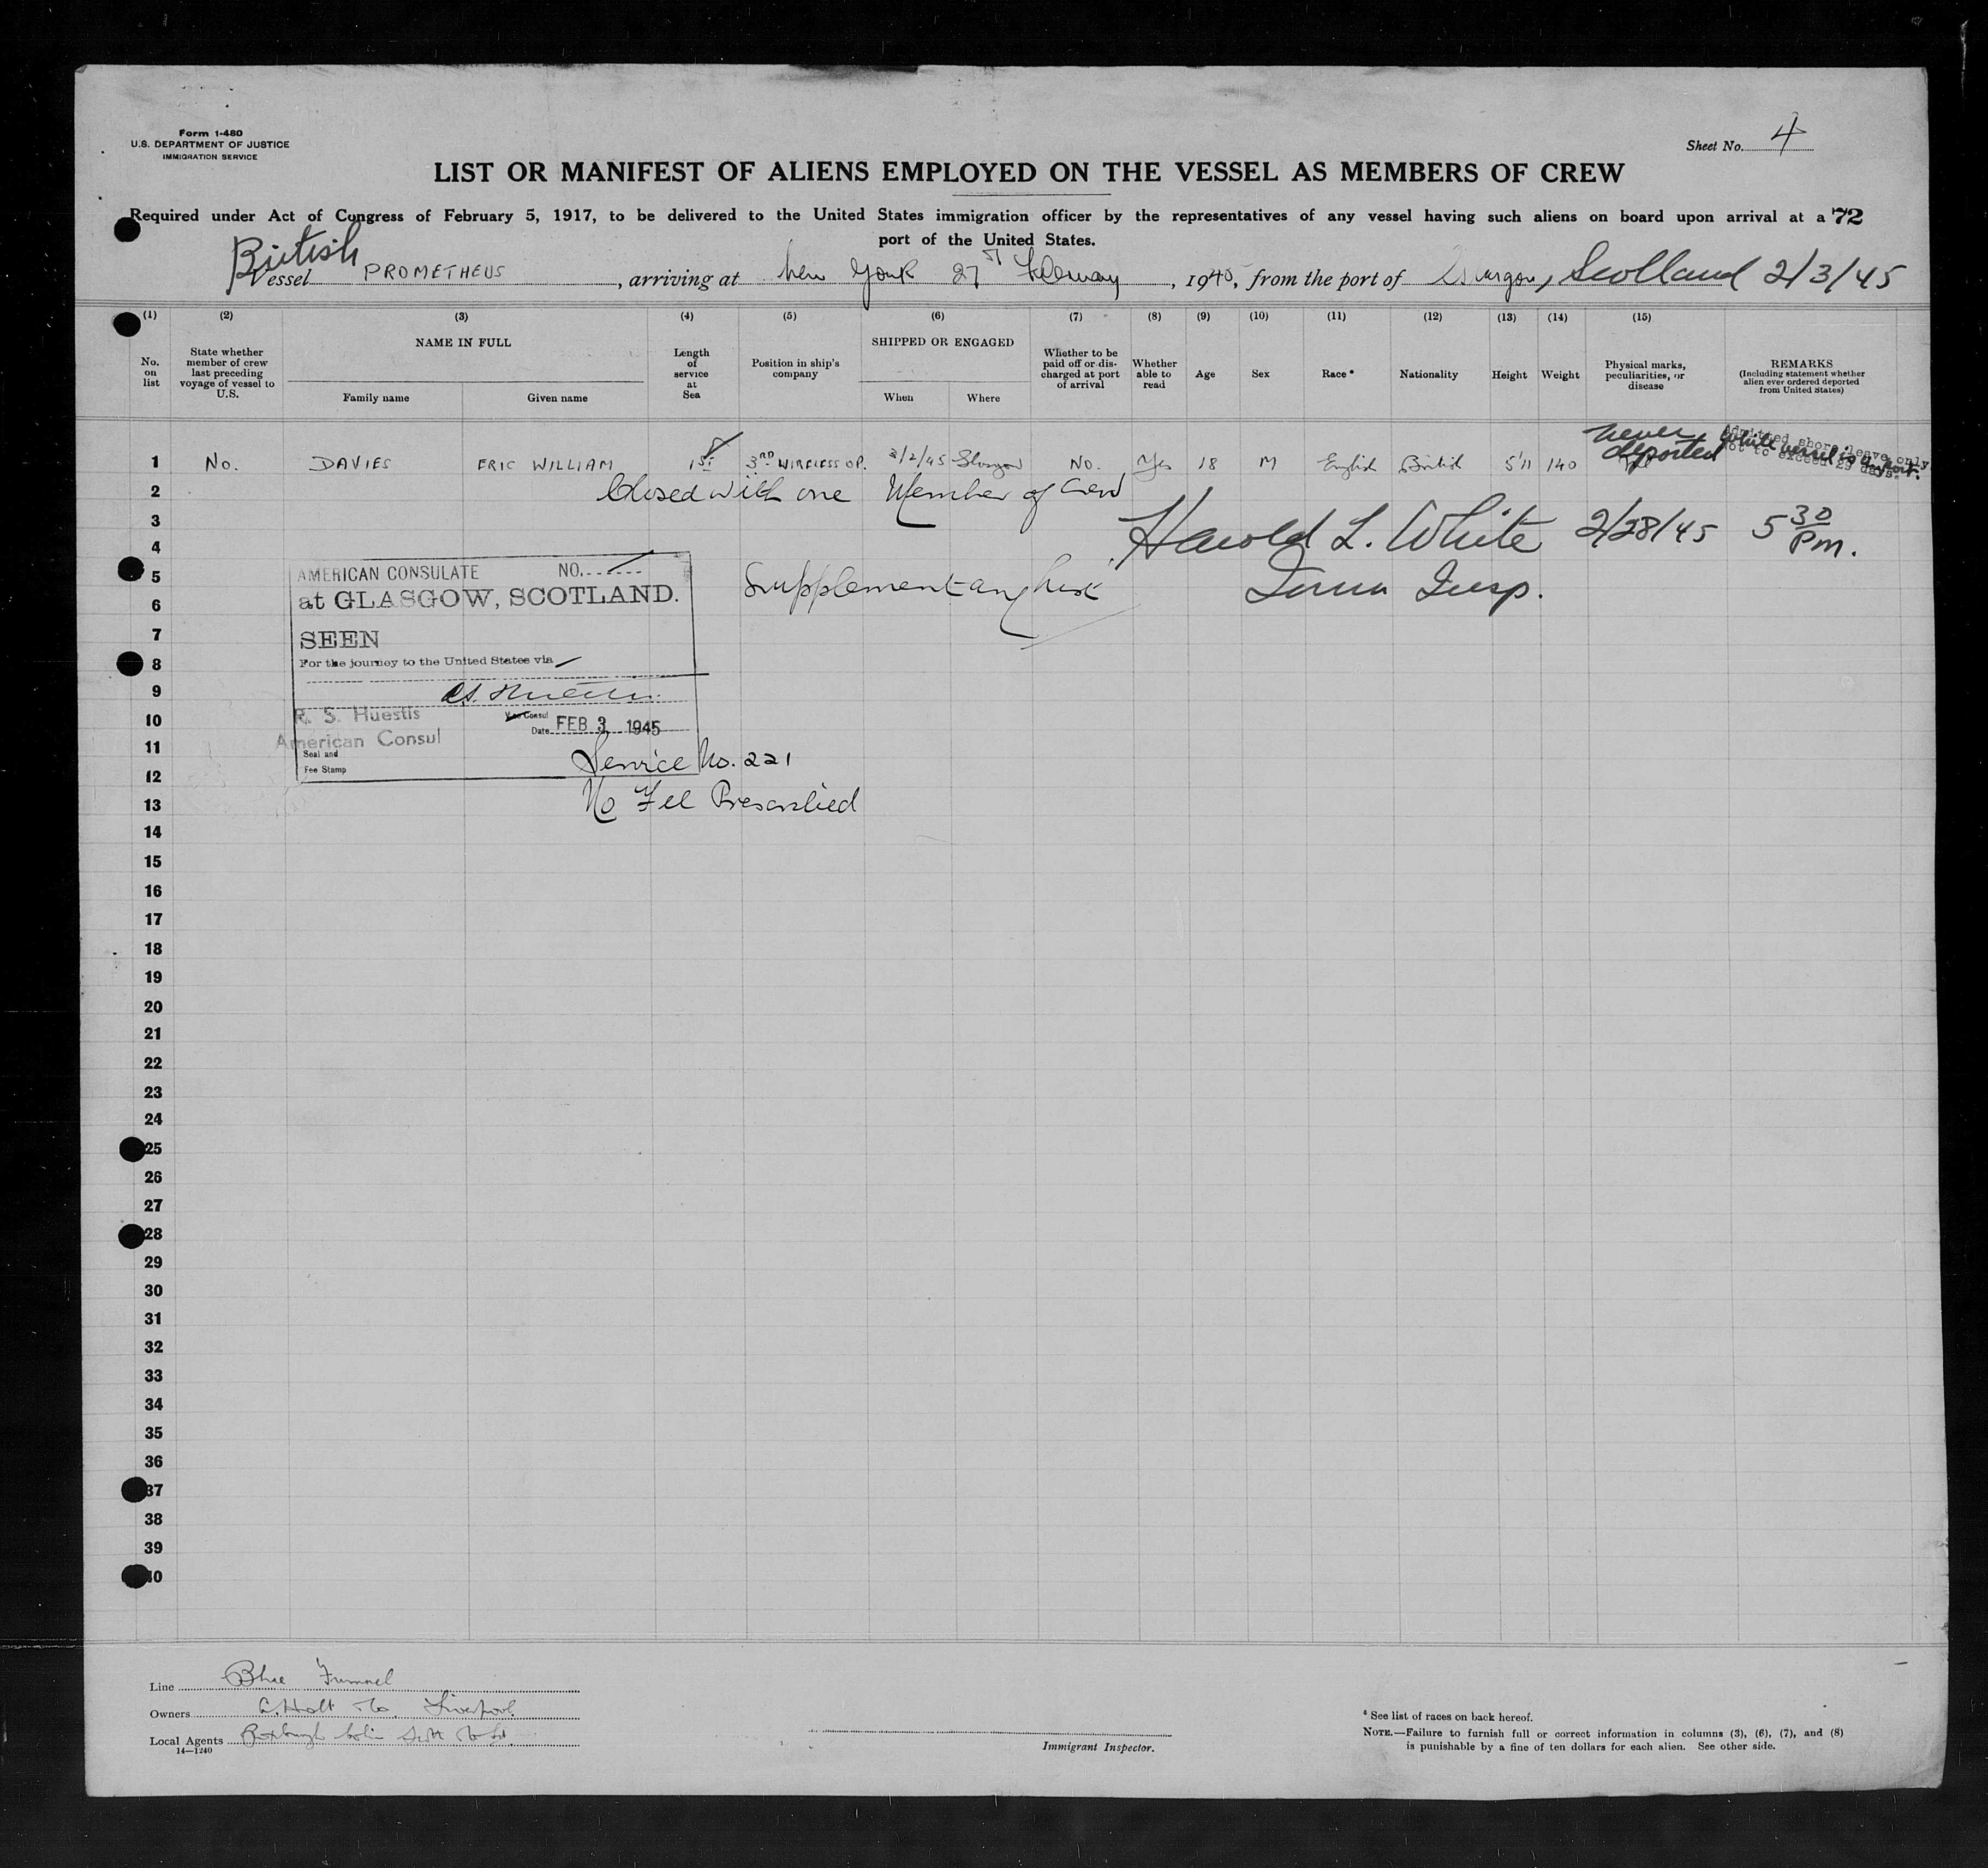 Form 1-480
U.S. DEPARTMENT OF JUSTICE
IMMIGRATION SERVICE
Sheet No. 4
LIST OR MANIFEST OF ALIENS EMPLOYED ON THE VESSEL AS MEMBERS OF CREW
Required under Act of Congress of February 5, 1917, to be delivered to the United States immigration officer by the representatives of any vessel having such aliens on board upon arrival at a 72
port of the United States.
British
Vessel PROMETHEUS, arriving at New York 27 February, 1945, from the port of Glasgow, Scotland 2/3/45
(1) (2) (3) (4) (5) (6) (7) (8) (9) (10) (11) (12) (13) (14) (15)
No. on list
State whether member of crew last preceding voyage of vessel to U.S.
NAME IN FULL
Family name
Given name
Length of service at Sea
Position in ship's company
SHIPPED OR ENGAGED
When
Where
Whether to be paid off or discharged at port of arrival
Whether able to read
Age
Sex
Race*
Nationality
Height
Weight
Physical marks, peculiarities, or disease
REMARKS
(Including statement whether alien ever ordered deported from United States)
never deported
Admitted shore leave only
while vessel is in port.
not to exceed 29 days.
1 No. DAVIES ERIC WILLIAM 1st 3RD WIRELESS OP. 3/2/45 Glasgow No. Yes 18 M English British 5'11 140
2 Closed with one Member of Crew
3 Harold L. White 2/28/45 5 30 Pm.
4
AMERICAN CONSULATE NO.
5 Supplementary List
at GLASGOW, SCOTLAND. Insp.
6
7 SEEN
8 For the journey to the United States via
9
10 R. S. Huestis Vice Consul
Date FEB 3 1945
11 American Consul
Seal and
Fee Stamp
Service No. 221
12
13 No Fee Prescribed
14
15
16
17
18
19
20
21
22
23
24
25
26
27
28
29
30
31
32
33
34
35
36
37
38
39
40
Line Blue Funnel
Owners A. Holt & Co. Liverpool.
Local Agents Roxburgh Colin Scott & Co Ld.
14—1240
Immigrant Inspector.
* See list of races on back hereof.
NOTE.—Failure to furnish full or correct information in columns (3), (6), (7), and (8)
is punishable by a fine of ten dollars for each alien. See other side.